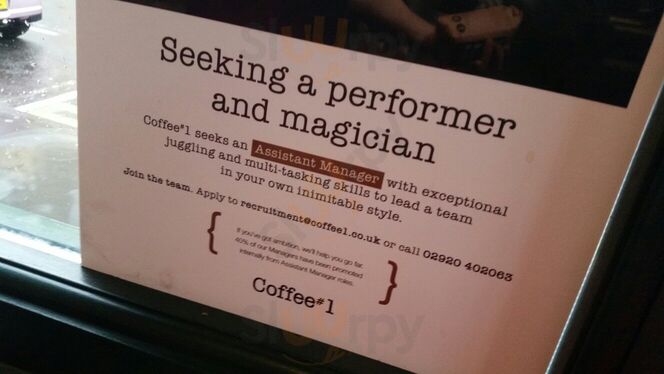 Seeking a performer
and magician
Coffee#1 seeks an Assistant Manager with exceptional
juggling and multi-tasking skills to lead a team
in your own inimitable style.
Join the team. Apply to recruitment@coffee1.co.uk or call 02920 402063
{ If you've got ambition, we'll help you go far.
40% of our Managers have been promoted
internally from Assistant Manager roles. }
Coffee#1
sluurpy
sluurpy